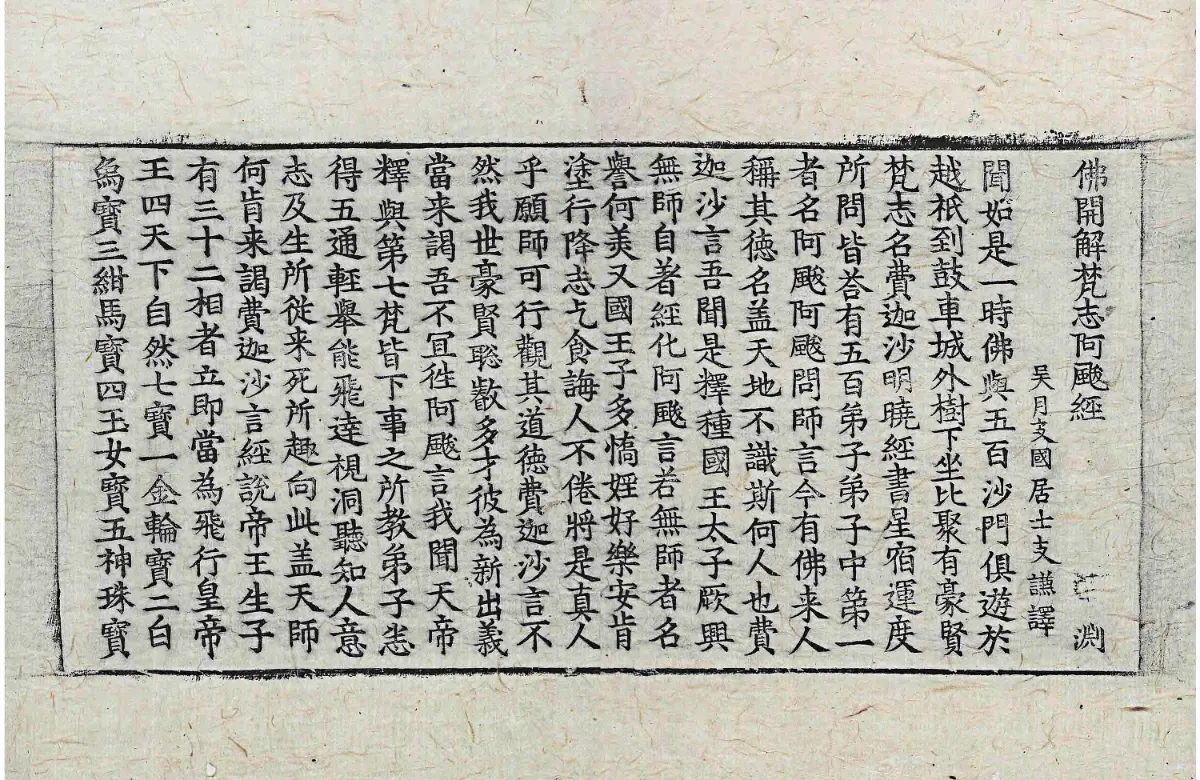 佛開解梵志阿颰經 淵
吴月支國居士支謙譯
聞如是一時佛與五百沙門俱遊於
越祇到鼓車城外樹下坐比聚有豪賢
梵志名費迦沙明曉經書星宿運度
所問皆荅有五百弟子弟子中第一
者名阿颰阿颰問師言今有佛来人
稱其德名盖天地不識斯何人也費
迦沙言吾聞是釋種國王太子厥興
無師自著經化阿颰言若無師者名
譽何美又國王子多憍婬好樂安肯
塗行降志乞食誨人不倦將是真人
乎願師可行觀其道德費迦沙言不
然我世豪賢聡叡多才彼為新出義
當来謁吾不冝徃阿颰言我聞天帝
釋與第七梵皆下事之所教弟子悉
得五通輕舉能飛達視洞聽知人意
志及生所從来死所趣向此盖天師
何肯来謁費迦沙言經說帝王生子
有三十二相者立即當為飛行皇帝
王四天下自然七寶一金輪寶二白
為寶三紺馬寶四玉女寶五神珠寶